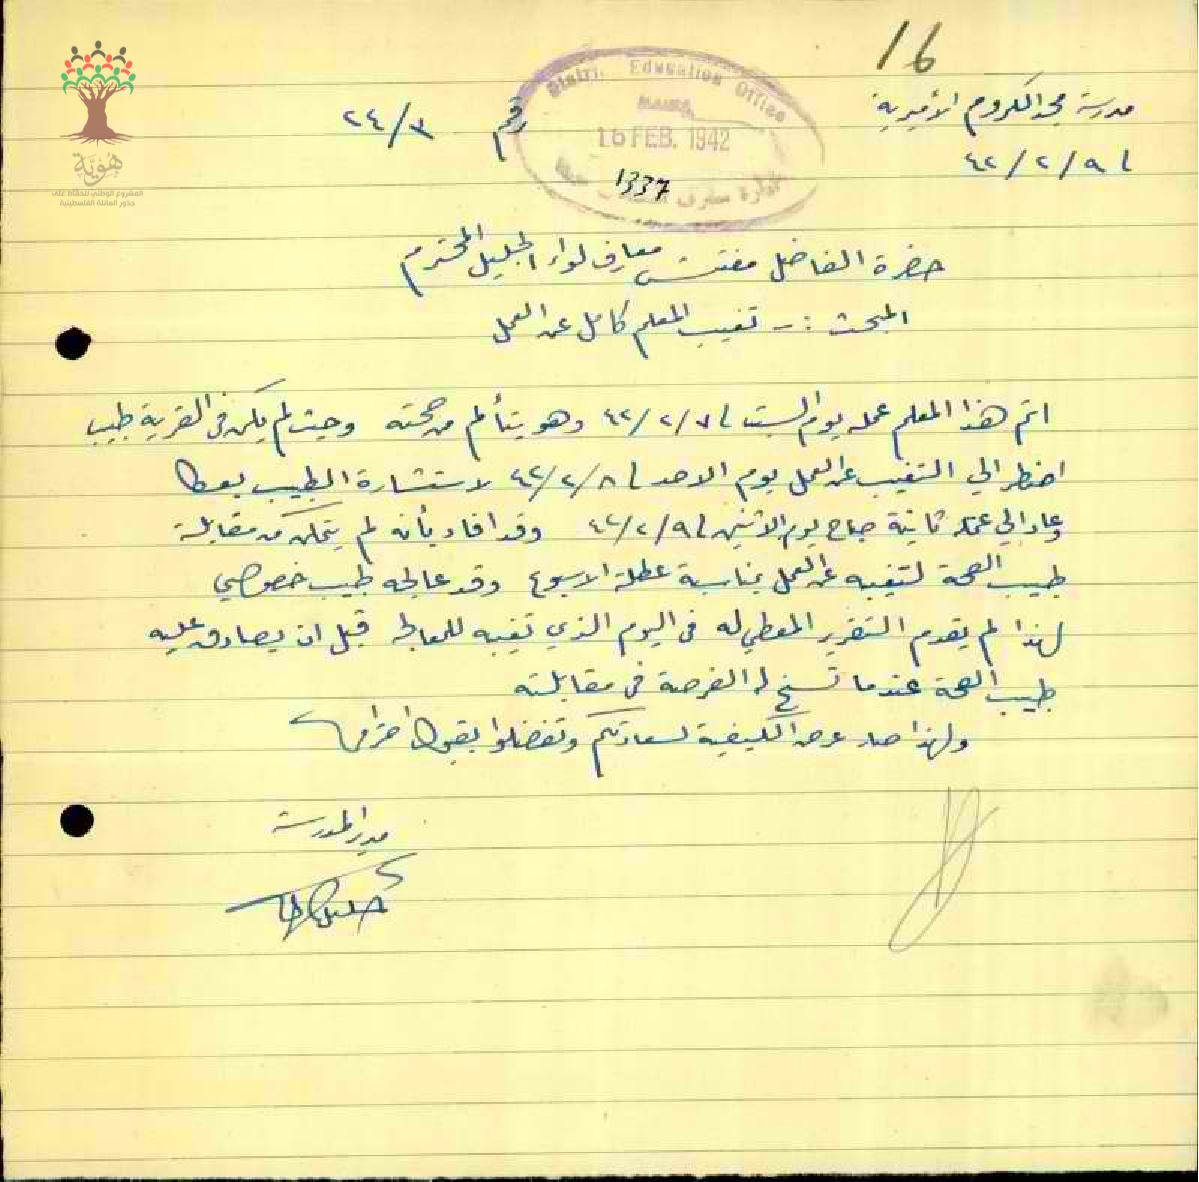 16
مدرسة مجد الكروم الأميرية
رقم ٢٤/٣
٤٢/٢/٩
District Education Office
HAIFA
16 FEB. 1942
1337
إدارة معارف
هُوِيَّة
المشروع الوطني للحفاظ على
جذور العائلة الفلسطينية
حضرة الفاضل مفتش معارف لواء الجليل المحترم
المبحث :- تغيب المعلم كامل عن العمل
اتم هذا المعلم عمله يوم السبت ٤٢/٢/٧ وهو يتألم من صحته وحيث لم يكن في القرية طبيب
اضطر الى التغيب عن العمل يوم الاحد ٤٢/٢/٨ لاستشارة الطبيب بعكا
وعاد الى عمله ثانية صباح يوم الاثنين ٤٢/٢/٩ وقد افاد بأنه لم يتمكن من مقابلة
طبيب الصحة لتغيبه عن العمل بمناسبة عطلة الاسبوع وقد عالجه طبيب خصوصي
لهذا لم يقدم التقرير المعطى له في اليوم الذي تغيبه للمعالجة قبل ان يصادق عليه
طبيب الصحة عندما تسنح له الفرصة في مقابلته
ولهذا صار عرض الكيفية لسعادتكم وتفضلوا بقبول احترامي
مدير المدرسة